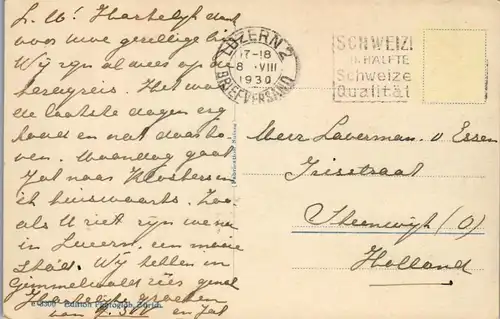 L. W! Hartelijk dank
voor uwe gezellige
Wij zijn al weer op de
terugreis. Het was
de laatste dagen erg
koud en nat daar bo-
ven. Maandag gaat
Jat naar Klosters en
ik huiswaarts. Zoo-
als U ziet zijn we nu
in Luzern, een mooie
stad. Wij hebben in
Gimmelwald zes
Hartelijk
van en Jat
LUZERN 2
17-18
8 VIII
1930
BRIEFVERSAND
SCHWEIZE
HÄLFTE
Schweize
Qualität
Meer Laverman. v Essen
Irisstraat
Steenwijk (O)
Holland
Edition Photoglob, Zürich.